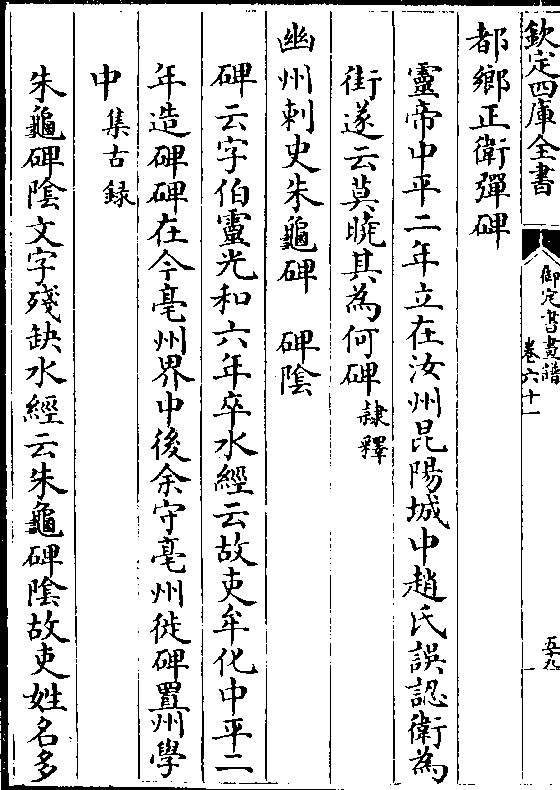 欽定四庫全書
御定書畫譜
卷六十一
五十九
都鄉正衛彈碑
靈帝中平二年立在汝州昆陽城中趙氏誤認衛為
街遂云莫曉其為何碑隸釋
幽州刺史朱龜碑　碑陰
碑云字伯靈光和六年卒水經云故吏牟化中平二
年造碑碑在今亳州界中後余守亳州徙碑置州學
中集古録
朱龜碑陰文字殘缺水經云朱龜碑陰故吏姓名多